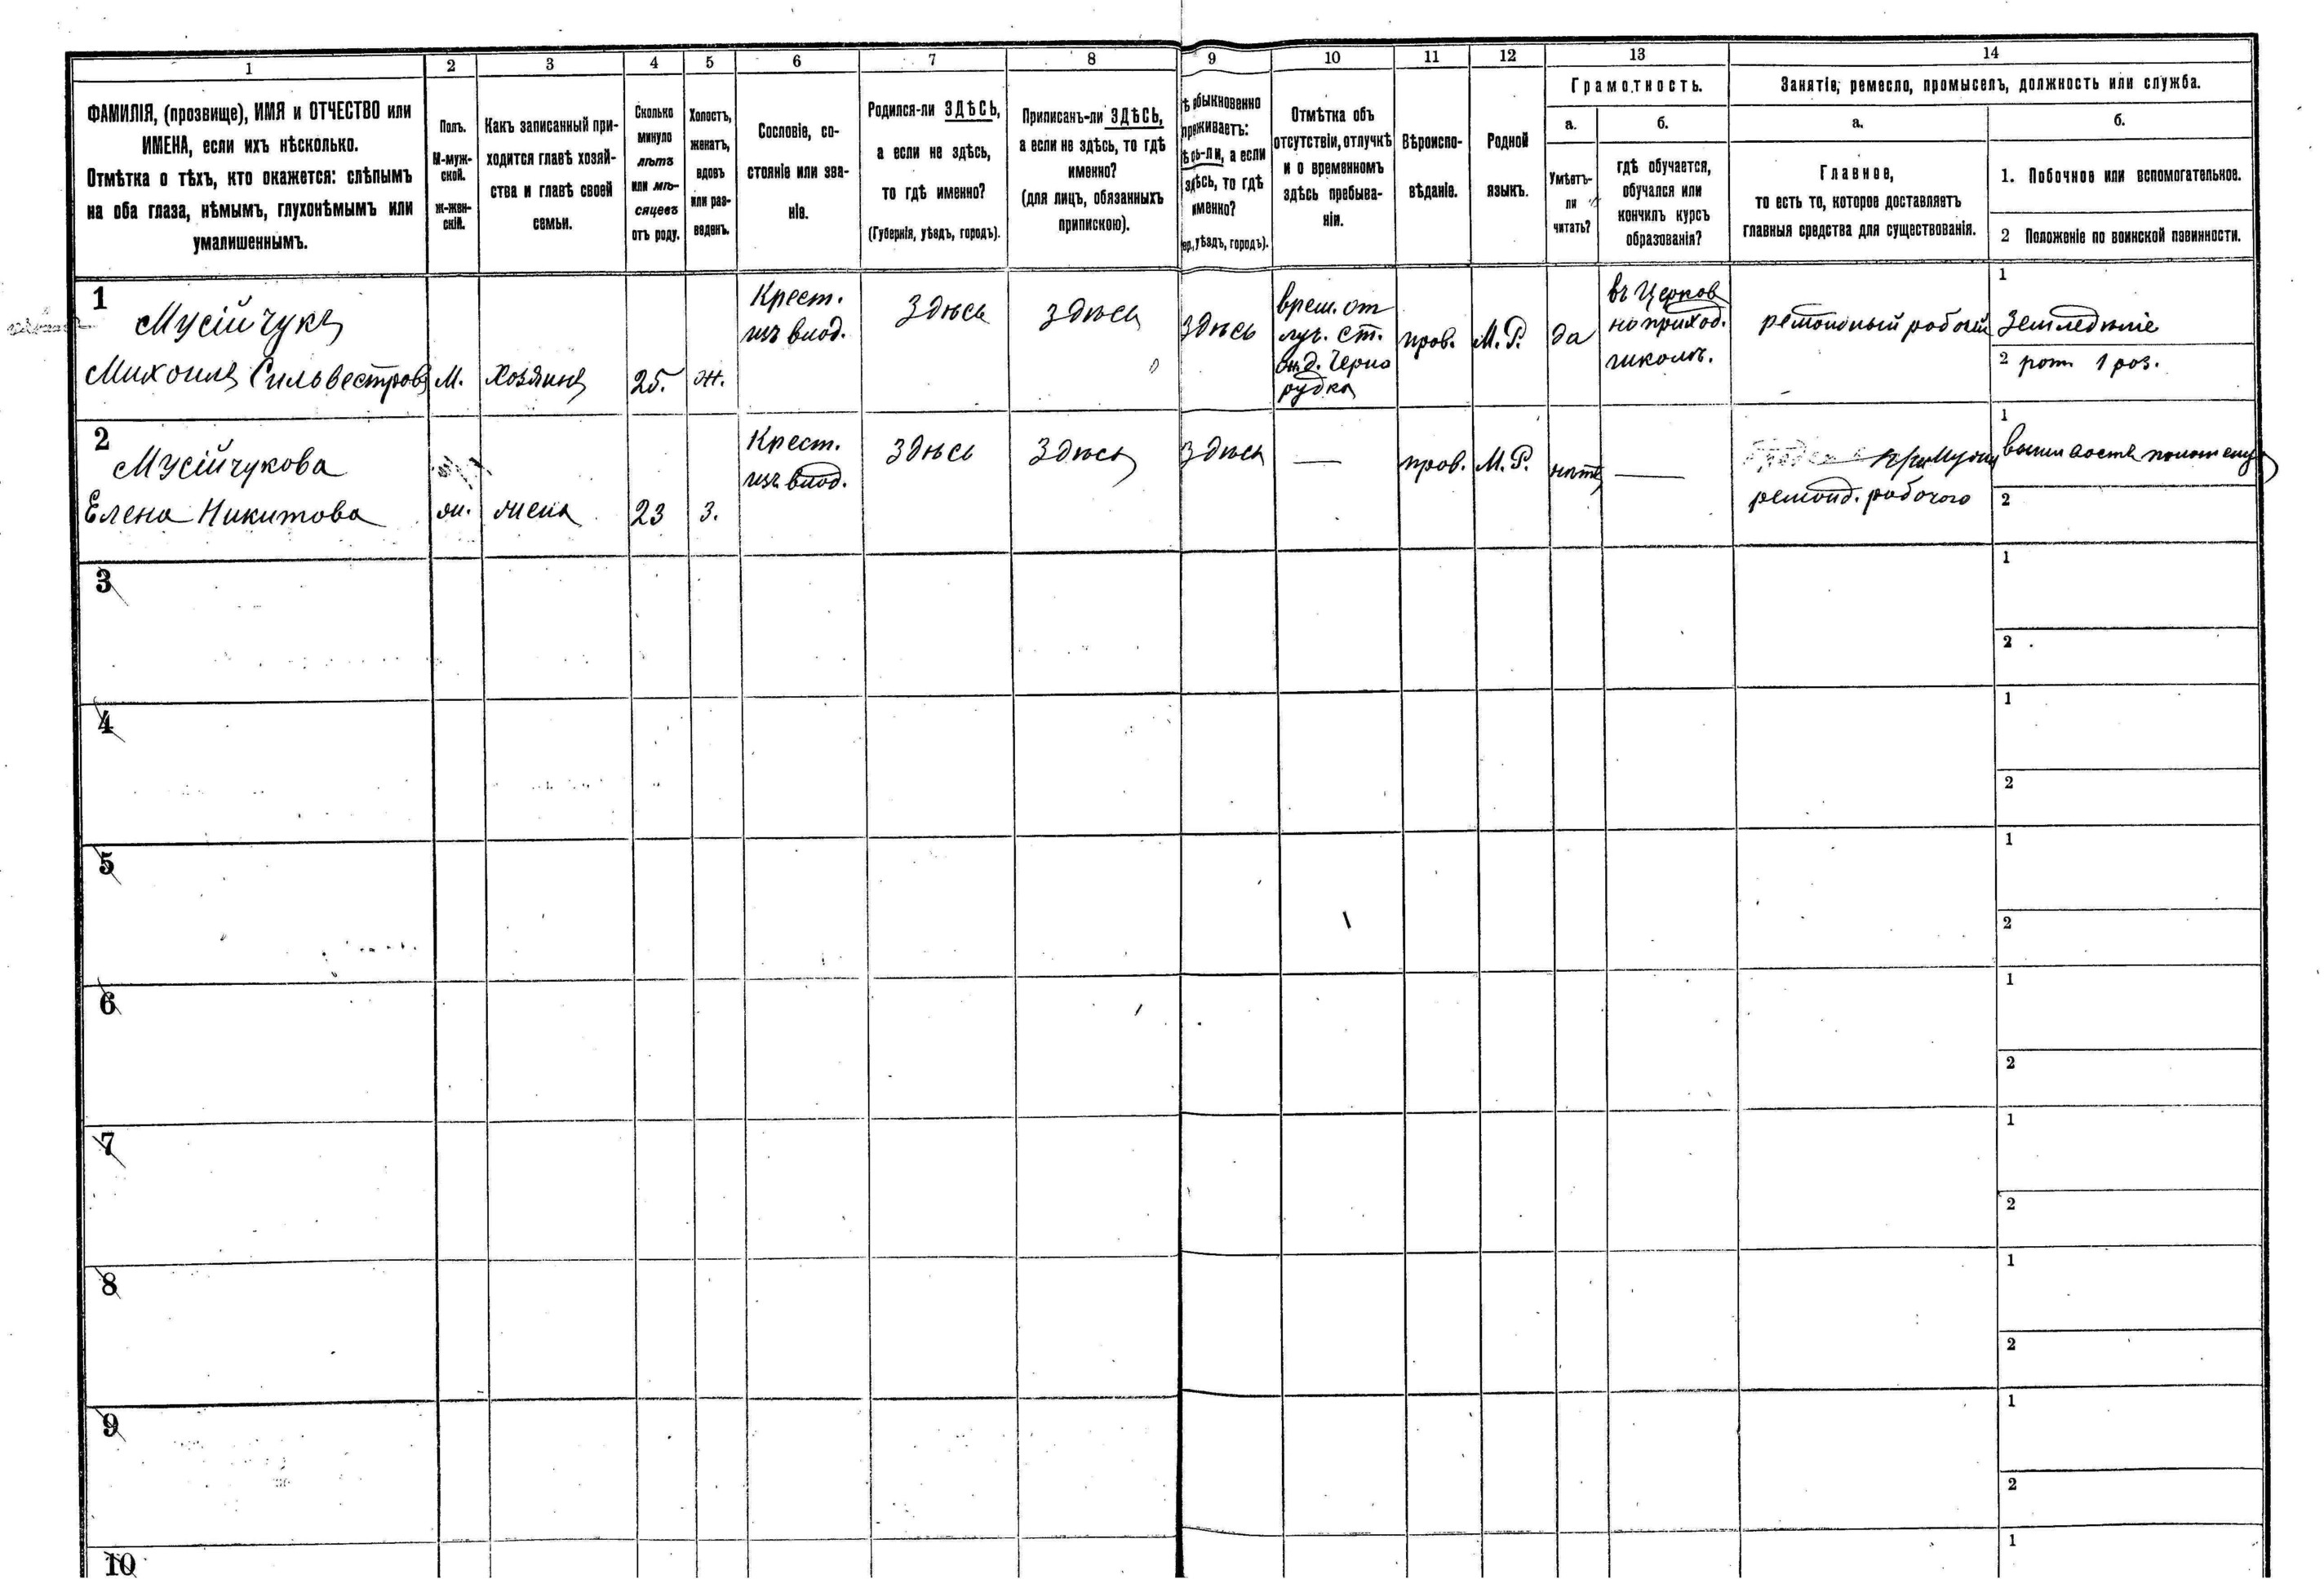 1 2 3 4 5 6 7 8 9 10 11 12 13 14
ФАМИЛІЯ, (прозвище), ИМЯ и ОТЧЕСТВО или
ИМЕНА, если ихъ нѣсколько.
Отмѣтка о тѣхъ, кто окажется: слѣпымъ
на оба глаза, нѣмымъ, глухонѣмымъ или
умалишеннымъ.
Полъ.
М-муж-
ской.
ж-жен-
скій.
Какъ записанный при-
ходится главѣ хозяй-
ства и главѣ своей
семьи.
Сколько
минуло
лѣтъ
или мѣ-
сяцевъ
отъ роду.
Холостъ,
женатъ,
вдовъ
или раз-
веденъ.
Сословіе, со-
стояніе или зва-
ніе.
Родился-ли ЗДѢСЬ,
а если не здѣсь,
то гдѣ именно?
(Губернія, уѣздъ, городъ).
Приписанъ-ли ЗДѢСЬ,
а если не здѣсь, то гдѣ
именно?
(для лицъ, обязанныхъ
припискою).
ѣ обыкновенно
проживаетъ:
ѣсь-ли, а если
здѣсь, то гдѣ
именно?
ер., уѣздъ, городъ).
Отмѣтка объ
отсутствіи, отлучкѣ
и о временномъ
здѣсь пребыва-
ніи.
Вѣроиспо-
вѣданіе.
Родной
языкъ.
Грамотность.
а.
Умѣетъ-
ли
читать?
б.
гдѣ обучается,
обучался или
кончилъ курсъ
образованія?
Занятіе, ремесло, промыселъ, должность или служба.
а.
Главное,
то есть то, которое доставляетъ
главныя средства для существованія.
б.
1. Побочное или вспомогательное.
2 Положеніе по воинской повинности.
1
Мусійчукъ
Михаилъ Сильвестровъ
М.
хозяинъ
25.
ж.
Крест.
изъ влад.
Здѣсь
здѣсь
здѣсь
врем. от
луч. ст.
ж.д. Черно
рудка
прав.
М.Р.
да
въ Церков
ноприход.
школѣ.
ремонтный рабочій
1
Земледѣліе
2 ратн. 1 раз.
2
Мусійчукова
Елена Никитова
ж.
жена
23
з.
Крест.
изъ влад.
Здѣсь
Здѣсь
Здѣсь
—
прав.
М.Р.
нѣтъ
—
при мужѣ
ремонт. рабочого
1
2
3
1
2
4
1
2
5
1
2
6
1
2
7
1
2
8
1
2
9
1
2
10
1